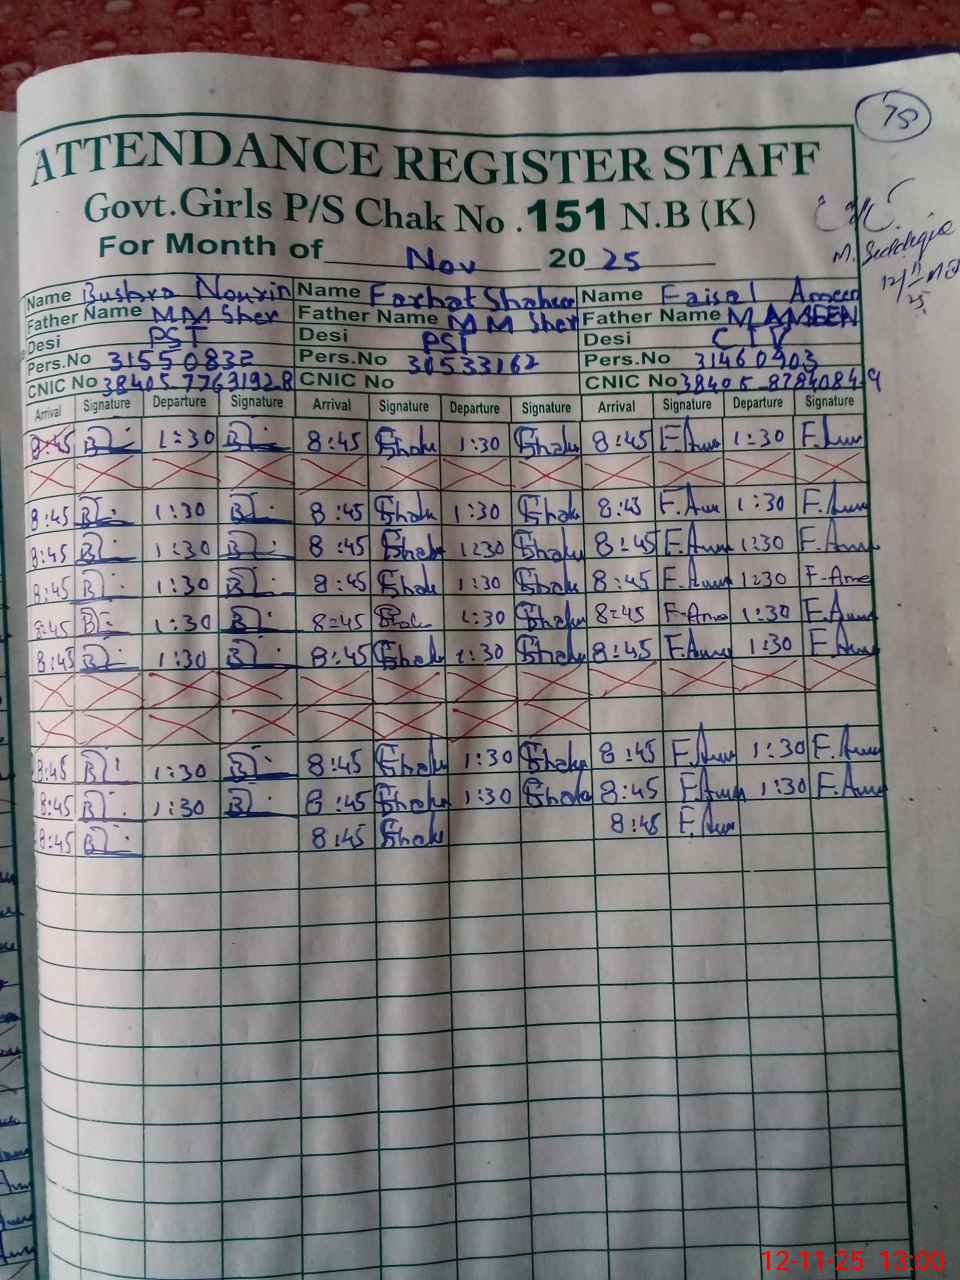 78
ATTENDANCE REGISTER STAFF
Govt.Girls P/S Chak No .151 N.B (K)
For Month of Nov 20 25
M. Siddique
12/11
25
Name Bushra Nourin Name Farhat Shaheen Name Faisal Ameen
Father Name M M Sher Father Name M M Sher Father Name M AMEEN
Desi PST Desi PST Desi CTV
Pers.No 31550832 Pers.No 30533162 Pers.No 31460903
CNIC No 38405 7763192 8 CNIC No CNIC No 38405-8784084-9
Arrival Signature Departure Signature Arrival Signature Departure Signature Arrival Signature Departure Signature
8:45 1:30 8:45 Shah 1:30 Shah 8:45 F.Am 1:30 F.Am
8:45 1:30 8:45 Shah 1:30 Shah 8:45 F.Am 1:30 F.Am
8:45 1:30 8:45 Shah 1:30 Shah 8:45 F.Am 1:30 F.Am
8:45 1:30 8:45 Shah 1:30 Shah 8:45 F.Am 1:30 F-Ame
8:45 1:30 8:45 1:30 Shah 8:45 F-Ame 1:30 F.Am
8:45 1:30 8:45 Shah 1:30 Shah 8:45 F.Am 1:30 F.Am
8:45 1:30 8:45 Shah 1:30 Shah 8:45 F.Am 1:30 F.Am
8:45 1:30 8:45 Shah 1:30 Shah 8:45 F.Am 1:30 F.Am
8:45 8:45 Shah 8:45 F.Am
12-11-25 13:00